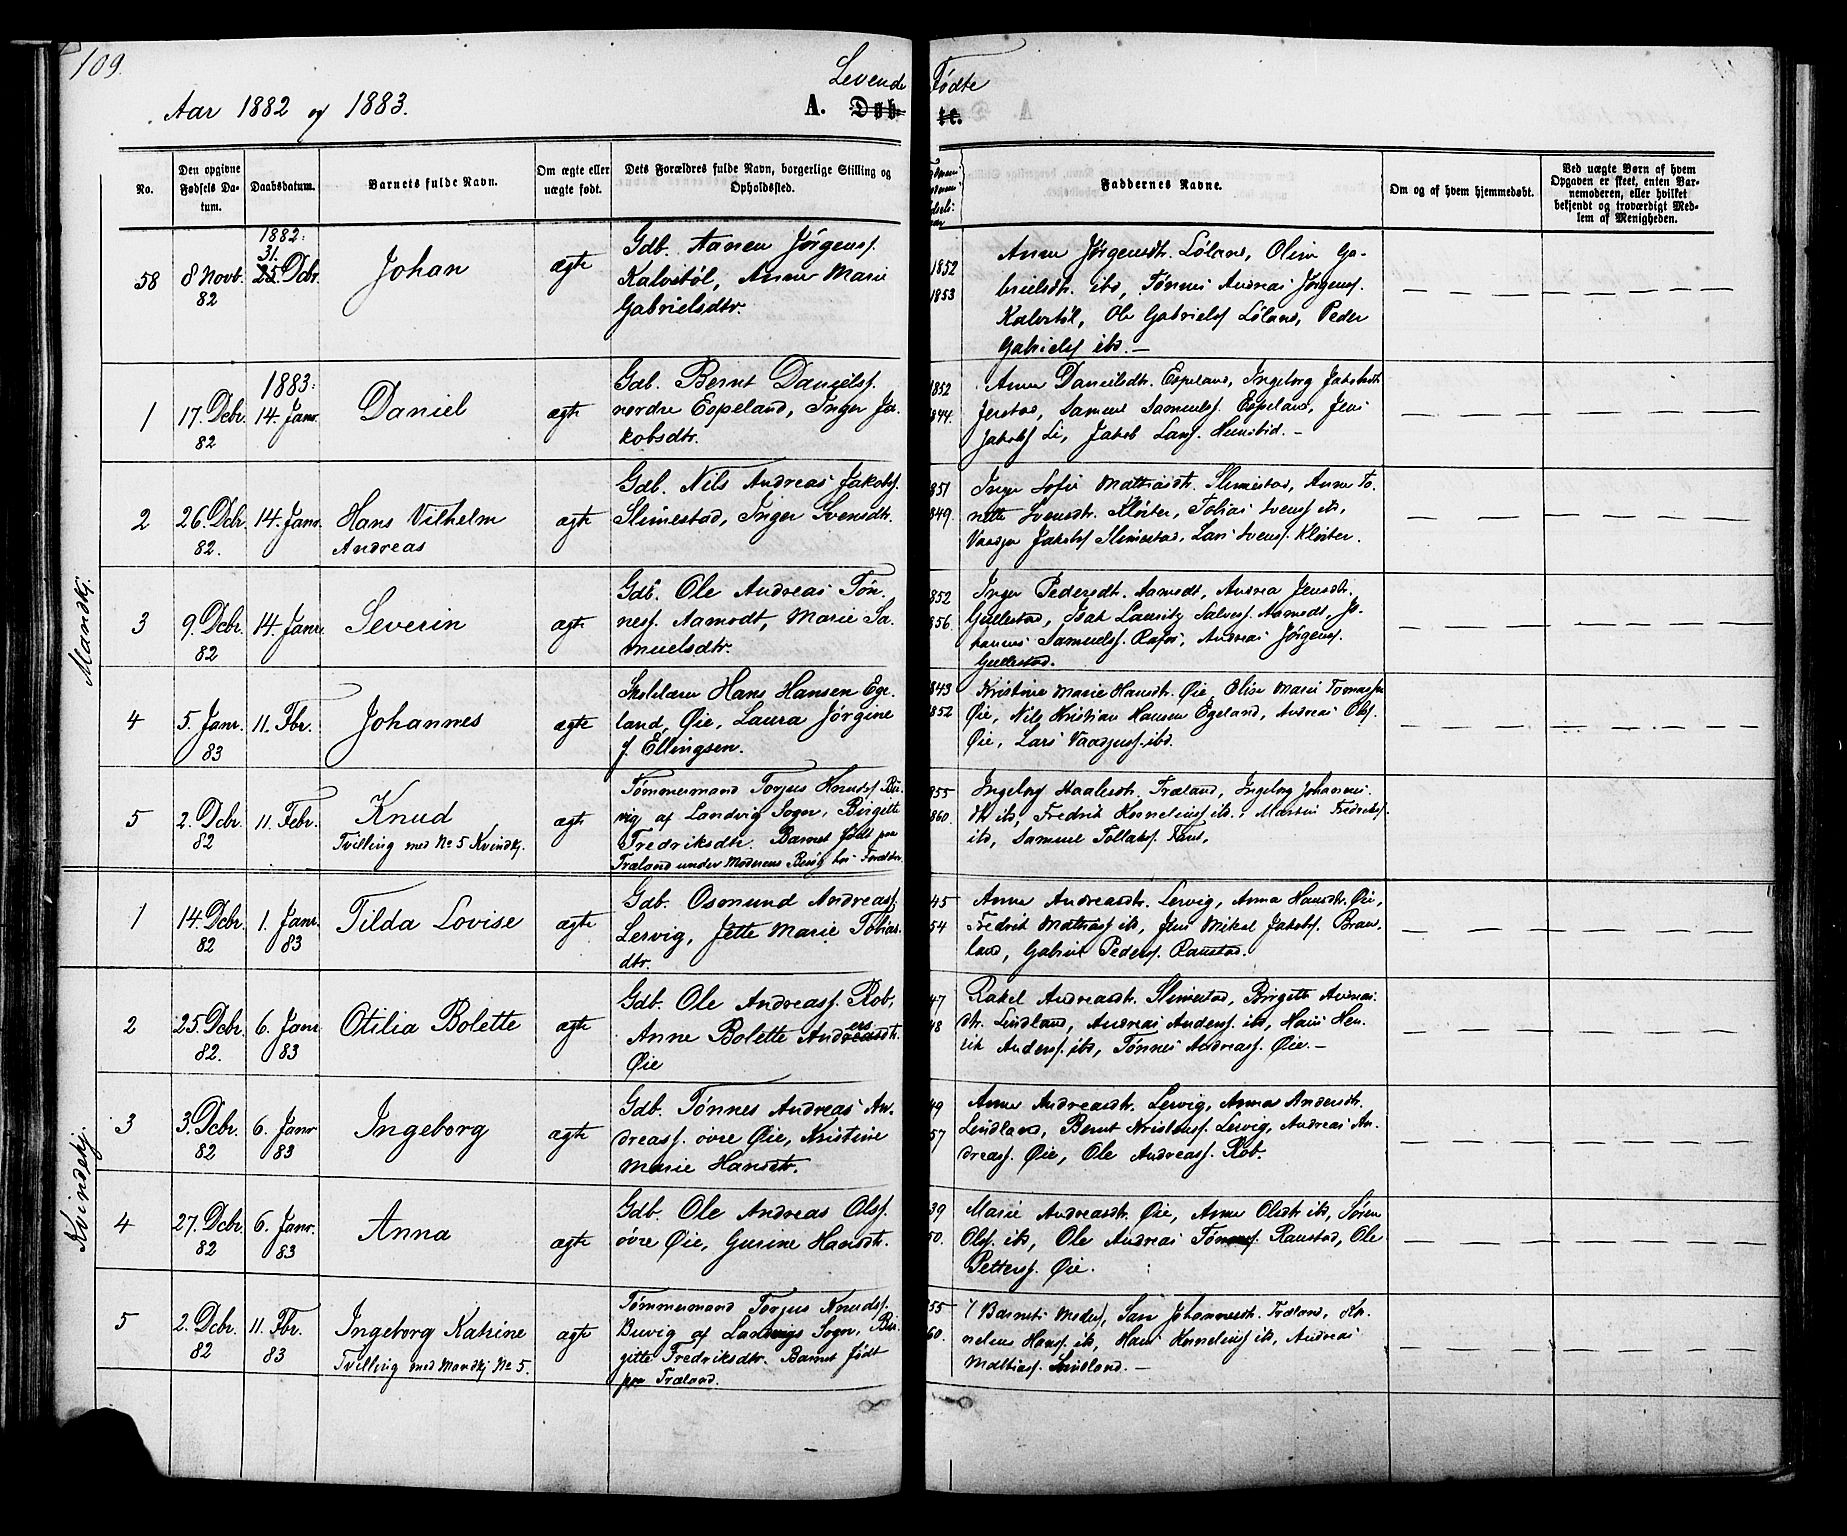 109.
Levende Fødte
Aar 1882 og 1883.
A. Døbte.
No.
Den opgivne Fødsels Datum.
Daabsdatum.
Barnets fulde Navn.
Om ægte eller uægte født.
Dets Forældres fulde Navn, borgerlige Stilling og Opholdssted.
Faddernes Navne.
Om og af hvem hjemmedøbt.
Ved uægte Børn af hvem Opgaven er skeet, enten Barnemoderen, eller hvilket bekjendt og troværdigt Medlem af Menigheden.
Mandkj.
58
8 Novb. 82
1882: 31. 25. Dcbr.
Johan
ægte
Gdb. Aanen Jørgenss.
Kalvstøl, Anne Marie
Gabrielsdtr.
1852
1853
Anne Jørgensdt. Løland, Oline Ga-
brielsdt. ibd, Tønnes Andreas Jørgenss.
Kalvstøl, Ole Gabrielss Løland, Peder
Gabrielss ibd. —
1
17. Dcbr. 82
1883: 14. Janr.
Daniel
ægte
Gdb. Bernt Danielss.
nordre Espeland, Inger Ja-
kobsdtr.
1852
1844.
Anne Danielsdt. Espeland, Ingeborg Jakobsdt.
Jerstad, Samuel Samuelss. Espeland, Jens
Jakobss Li, Jakob Larss.
2
26. Dcbr. 82.
14. Janr.
Hans Vilhelm
Andreas
ægte
Gdb. Nils Andreas Jakobss.
Slimestad, Inger Svensdt.
851
849.
Inger Sofie Mathiasdt. Slimestad, Anne To-
nette Svensdt. Kloster, Tobias Svenss ibd,
Vaadjer Jakobss Slimestad, Lars Svenss. Kloster.
3
9. Dcbr. 82
14. Janr.
Severin
ægte
Gdb. Ole Andreas Tøn-
ness. Aamodt, Marie Sa-
muelsdtr.
852
856.
Inger Pedersdt. Aamodt, Andrea Jensdt.
Gullestad, Isak Lauritz Salvess. Aamodt, Jo-
hannes Samuelss. Rafos, Andreas Jørgenss.
Gullestad.
4
5. Janr. 83
11. Fbr.
Johannes
ægte
Skolelærer Hans Hansen Ege-
land, Øie, Laura Jørgine
f. Ellingsen.
843
852
Kristine Marie Hansdt. Øie, Elise Marie
Øie, Nils Kristian Hansen Egeland, Andreas Olss.
Øie, Lars Vaadjerss. ibd.
5
2. Dcbr. 82
11. Febr.
Knud
Tvilling med No 5 Kvindkj.
ægte
Tømmermand Torjus Knudss Bu-
vig af Landvig Sogn, Birgitte
Fredriksdtr. Barnet født paa
Træland under Moderens Besøg hos Forældre.
855
860.
Ingeborg Træland, Ingeborg Johannes-
dt. ibd, Fredrik Korneliuss ibd, Martin Fredrikss.
ibd, Samuel Tollakss.
Kvindekj.
1
14. Dcbr. 82
1. Janr. 83
Tilda Lovise
ægte
Gdb. Osmund Andreass.
Lervig, Jette Marie Tobias-
dtr.
45
54
Anne Andreasdt. Lervig, Anna Hansdt. Øie,
Fredrik Mathiass ibd, Jens Mikal Jakobss.
Gabriel Pederss. Raustad.
2
25. Dcbr. 82.
6. Janr. 83
Otilia Bolette
ægte
Gdb. Ole Andreass. Rob,
Anne Bolette Andersdt.
Øie
47
48
Rakel Andreasdt. Slimestad, Birgitte Andreas-
dt. Lindland, Andreas Anderss. ibd, Hans Hen-
rik Anderss. ibd, Tønnes Andreass. Øie. —
3
3. Dcbr. 82
6. Janr 83
Ingeborg
ægte
Gdb. Tønnes Andreas An-
dreass. øvre Øie, Kristine
Marie Hansdt.
49
57
Anne Andreasdt. Lervig, Anna Andersdt.
Lindland, Bernt Kristenss. Lervig, Andreas An-
dreass. Øie, Ole Andreass. Rob.
4
27. Dcbr. 82
6. Janr. 83
Anna
ægte
Gdb. Ole Andreas Olss.
øvre Øie, Gurine Hansdt.
39
50.
Marie Andreasdt. Øie, Anne Olsdt. ibd, Søren
Olss. ibd, Ole Andreas Tønness. Raustad, Ole
Petterss. Øie.
5
2. Dcbr. 82
11. Fbr. 83
Ingeborg Katrine
Tvilling med Mandkj No 5.
ægte
Tømmermand Torjus Knudss.
Buvig af Landvigs Sogn, Bir-
gitte Fredriksdtr. Barnet født
paa Træland.
855
60.
Barnets Moder, Johannesdt. Træland, Kor-
nelius Hanss. ibd, Hans Korneliuss ibd, Andreas
Mathiass. Lindland. —